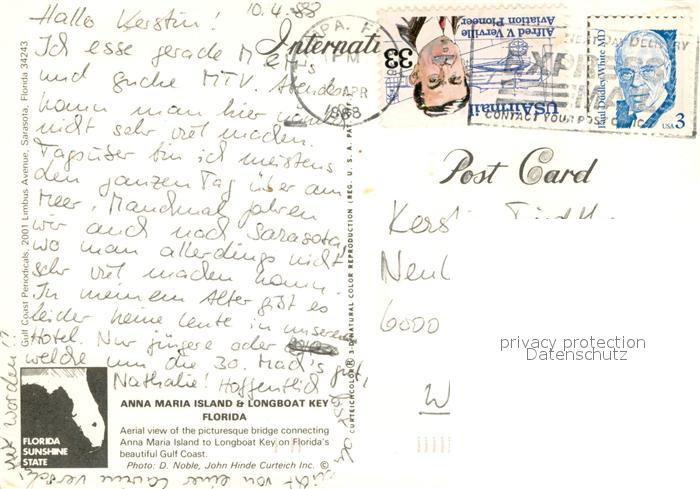 10.4.88
Hallo Kerstin!
Ich esse gerade
und gucke MTV. Abends
kann man hier
nicht sehr viel machen.
Tagsüber bin ich meistens
den ganzen Tag über am
Meer. Manchmal fahren
wir auch nach Sarasota,
wo man allerdings nicht
sehr viel machen kann.
In meinem Alter gibt es
leider keine Leute in unserem
Hotel. Nur jüngere oder
welche um die 30. Mach's gut,
Nathalie! Hoffentlich
Gulf Coast Periodicals, 2001 Limbus Avenue, Sarasota, Florida 34243
FLORIDA
SUNSHINE
STATE
ANNA MARIA ISLAND & LONGBOAT KEY
FLORIDA
Aerial view of the picturesque bridge connecting
Anna Maria Island to Longboat Key on Florida's
beautiful Gulf Coast.
Photo: D. Noble, John Hinde Curteich Inc. ©
CURTEICHCOLOR® 3-D NATURAL COLOR REPRODUCTION (REG. U.S.A. PAT. OFF.)
Internati
PM
APR
1988
33
Alfred V. Verville
Aviation Pioneer
USAirmail
Paul Dudley White MD
USA 3
DAY DELIVERY
CONTACT YOUR POS
Post Card
6000
W
privacy protection
Datenschutz